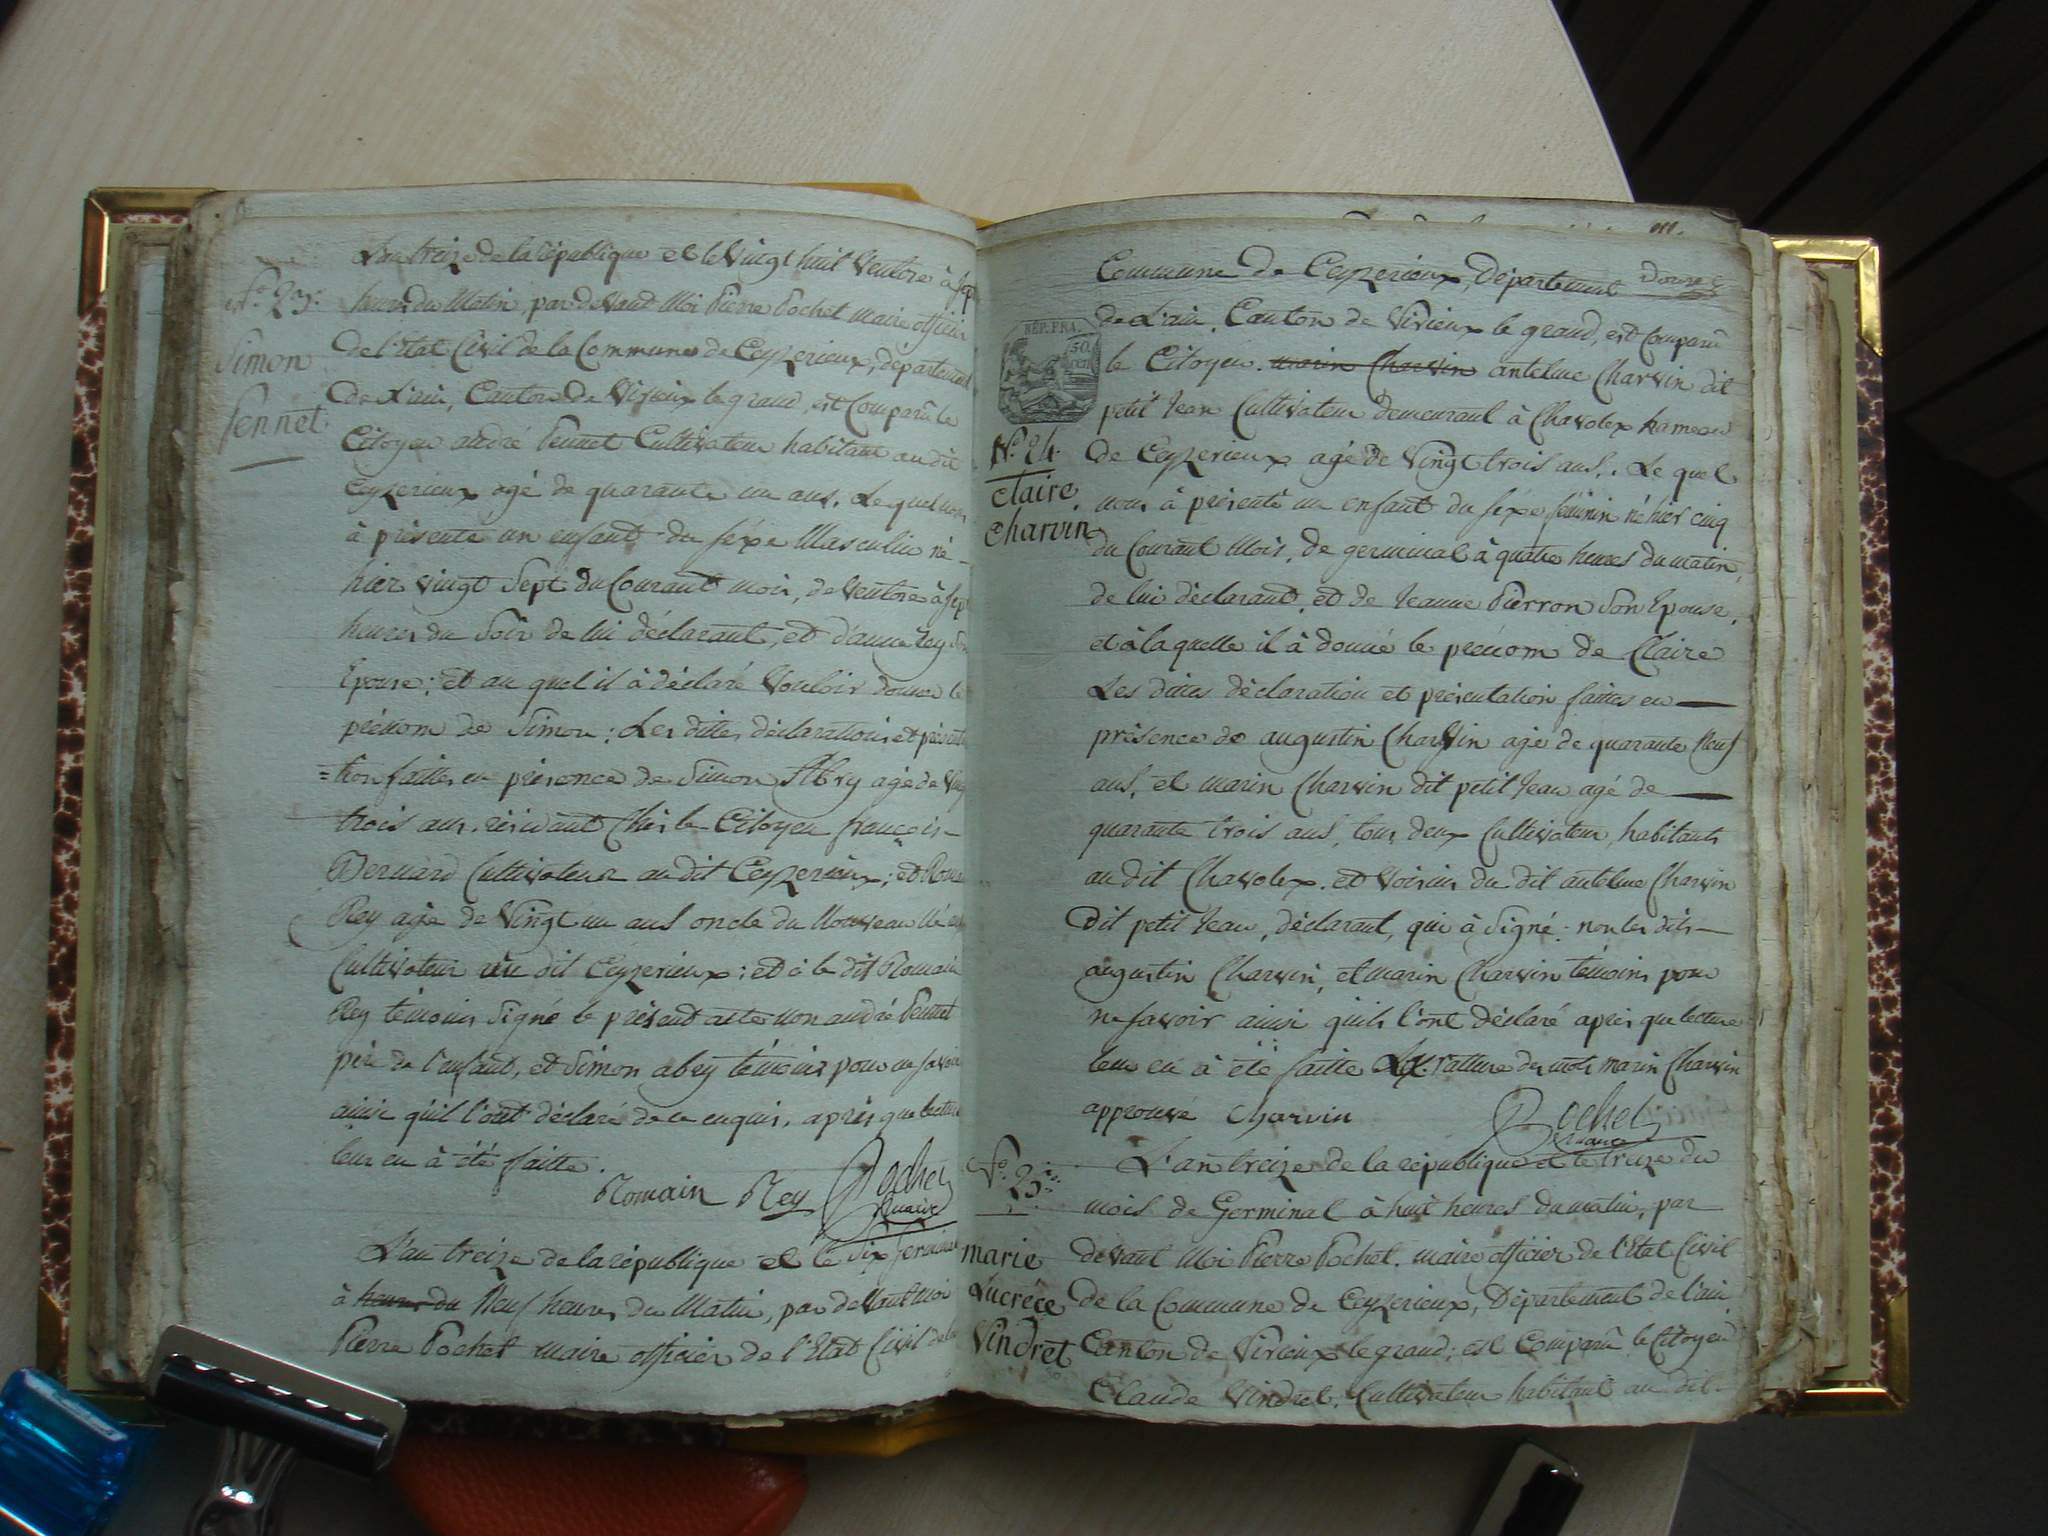 L'an treize de la république et le Vingt huit Ventose à sep
heures du Matin, par devant Moi Pierre Pochet maire officier
N.o 23.
de l'Etat Civil de la Commune de Ceyzerieux, département
Simon
de L'ain, Canton de Virieux le grand, est Comparû le
Pennet
Citoyen andré Pennet Cultivateur habitant au dit
Ceyzerieux agé de quarante un ans. Le quel nous
à présenté un enfant du séxe Masculin né
hier vingt Sept du Courant mois, de Ventose à sept
heures du Soir de lui déclarant, et d'anne Rey
Epouse; et au quel il à déclaré Vouloir donner le
prénom de Simon: Les dittes déclarations et présenta
=tion faittes en présence de Simon Abry agé de Vingt
trois ans. résidant Chés le Citoyen françois
Bernard Cultivateur au dit Ceyzerieux; et Romain
Rey agée de Vingt un ans oncle du Nouveau Né
Cultivateur au dit Ceyzerieux: et à le dit Romain
Rey témoins Signé le présent acte non andré Pennet
pére de l'enfant, et Simon abry témoins pour ne savoir
ainsi qu'il l'ont déclaré de ce enquis. après que lecture
leur en à été faitte.
Romain Rey Pochet
maire
L'an treize de la république et le Six Germinal
à heures du Neuf heures du Matin, par devant Moi
Pierre Pochet maire officier de l'Etat Civil de la
Commune de Ceyzerieux, Département
Douze
REP. FRA.
50
cen
de L'ain, Canton de Virieux le grand, est Comparû
le Citoyen. marin Charvin antelme Charvin dit
petit Jean Cultivateur demeurant à Chavolex hameau
N.o 24.
Claire
Charvin
de Ceyzerieux agé de Vingt trois ans,. Le quel
nous à présenté un enfant du séxe féminin né hier cinq
du Courant Mois, de germinal à quatre heures du matin,
de lui déclarant, et de Jeanne Pierron Son Epouse,
et à la quelle il à donné le prénom de Claire
Les dittes déclaration et présentation faittes en
présence de augustin Charvin agé de quarante Neuf
ans, et marin Charvin dit petit Jean agé de
quarante trois ans, tous deux Cultivateur, habitants
au dit Chavolex. et Voisins du dit antelme Charvin
dit petit Jean, déclarant, qui à Signé: non les dits
augustin Charvin, et marin Charvin témoins pour
ne savoir ainsi quils l'ont déclaré après que lecture
leur en à été faitte ratture des mots marin Charvin
approuvé Charvin Pochet
maire
N.o 25.
L'an treize de la république et le treize du
mois de Germinal à huit heures du matin, par
marie
Lucrêce
Vindret
devant Moi Pierre Pochet. maire officier de l'Etat Civil
de la Commune de Ceyzerieux, Département de l'ain,
Canton de Virieux le grand; est Comparû le Citoyen
Claude Vindret, Cultivateur habitant au dit